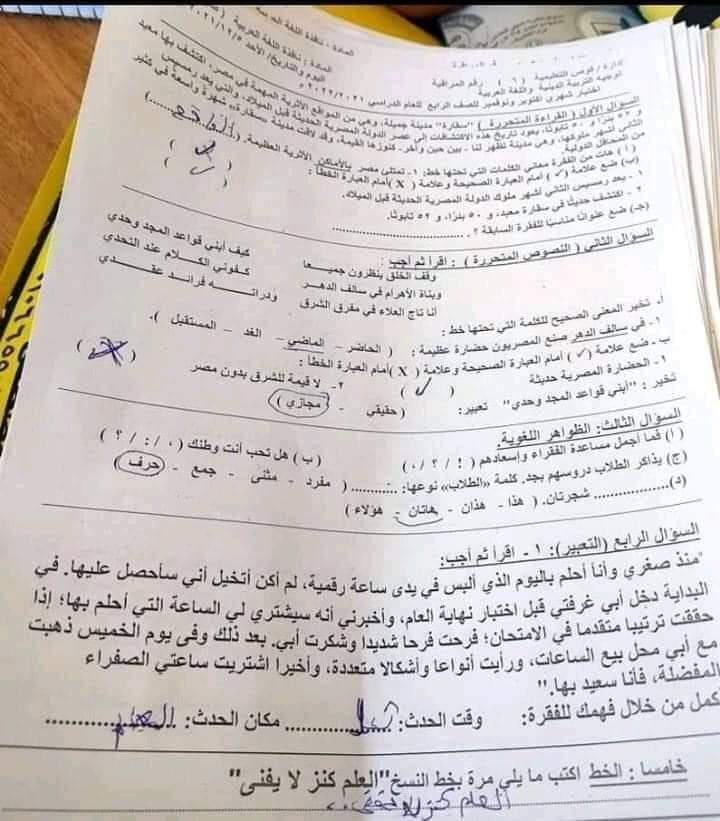 المادة : نافذة اللغة العربية
اليوم والتاريخ/ الأحد ٢٠٢١/١٢/٥
إدارة / قوص التعليمية ( ٦ ) رقم المراقبة
توجيه التربية الدينية واللغة العربية
اختبار شهري أكتوبر ونوفمبر للصف الرابع للعام الدراسي ٢٠٢٢/٢٠٢١م
السؤال الأول ( القراءة المتحررة ) "سقارة" مدينة جميلة، وهي من المواقع الأثرية المهمة في مصر، اكتشف بها معبد
و ٥٢ بئرًا و ٥٠ تابوتا، يعود تاريخ هذه الاكتشافات إلى عصر الدولة المصرية الحديثة قبل الميلاد، والتي يعد رمسيس
الثاني أشهر ملوكها، وهي مدينة تظهر لنا - بين حين وآخر- كنوزها القيمة، وقد لاقت مدينة «سقارة» شهرة واسعة في كثير
من المحافل الدولية.
( أ ) هات من الفقرة معاني الكلمات التي تحتها خط: ١- تمتلئ مصر بالأماكن الأثرية العظيمة. (........)
(ب) ضع علامة (✓) أمام العبارة الصحيحة وعلامة ( X ) أمام العبارة الخطأ :
١ - يعد رمسيس الثاني أشهر ملوك الدولة المصرية الحديثة قبل الميلاد. ( ✓ )
٢ - اكتشف حديثًا في سقارة معبد، و ٥٠ بئرًا، و ٥٢ تابوتا. ( )
(جـ) ضع عنوانًا مناسبًا للفقرة السابقة ؟ ........................
السؤال الثاني ( النصوص المتحررة ) : اقرأ ثم أجب :
وقف الخلق ينظرون جميـــعا كيف أبني قواعد المجد وحدي
وبناة الأهرام في سالف الدهـــر كـفوني الكـــلام عند التحدي
أنا تاج العلاء في مفرق الشرق ودراتـــه فرائـــد عقـــدي
أ- تخير المعنى الصحيح للكلمة التي تحتها خط :
١- في سالف الدهر صنع المصريون حضارة عظيمة : ( الحاضر – الماضي – الغد – المستقبل ).
ب - ضع علامة (✓) أمام العبارة الصحيحة وعلامة ( X ) أمام العبارة الخطأ :
١- الحضارة المصرية حديثة ( ✓ ) ٢- لا قيمة للشرق بدون مصر ( X )
تخير : "أبني قواعد المجد وحدي" تعبير: ( حقيقي - مجازي )
السؤال الثالث: الظواهر اللغوية.
( أ ) فما أجمل مساعدة الفقراء وإسعادهم ( ! / ؟ / ،) ( ب ) هل تحب أنت وطنك ( ، / : / ؟ )
(ج) يذاكر الطلاب دروسهم بجد. كلمة «الطلاب» نوعها: ........... ( مفرد - مثنى - جمع - حرف )
(د)................ شجرتان. ( هذا - هذان - هاتان - هؤلاء )
السؤال الرابع (التعبير): ١ - اقرأ ثم أجب:
"منذ صغري وأنا أحلم باليوم الذي ألبس في يدى ساعة رقمية، لم أكن أتخيل أني سأحصل عليها. في
البداية دخل أبي غرفتي قبل اختبار نهاية العام، وأخبرني أنه سيشتري لي الساعة التي أحلم بها؛ إذا
حققت ترتيبا متقدما في الامتحان؛ فرحت فرحا شديدا وشكرت أبي. بعد ذلك وفي يوم الخميس ذهبت
مع أبي محل بيع الساعات، ورأيت أنواعا وأشكالا متعددة، وأخيرا اشتريت ساعتي الصفراء
المفضلة، فأنا سعيد بها."
كمل من خلال فهمك للفقرة: وقت الحدث: ................ مكان الحدث: ................
خامسا : الخط اكتب ما يلي مرة بخط النسخ "العلم كنز لا يفنى"
العلم كنز لا يفنى